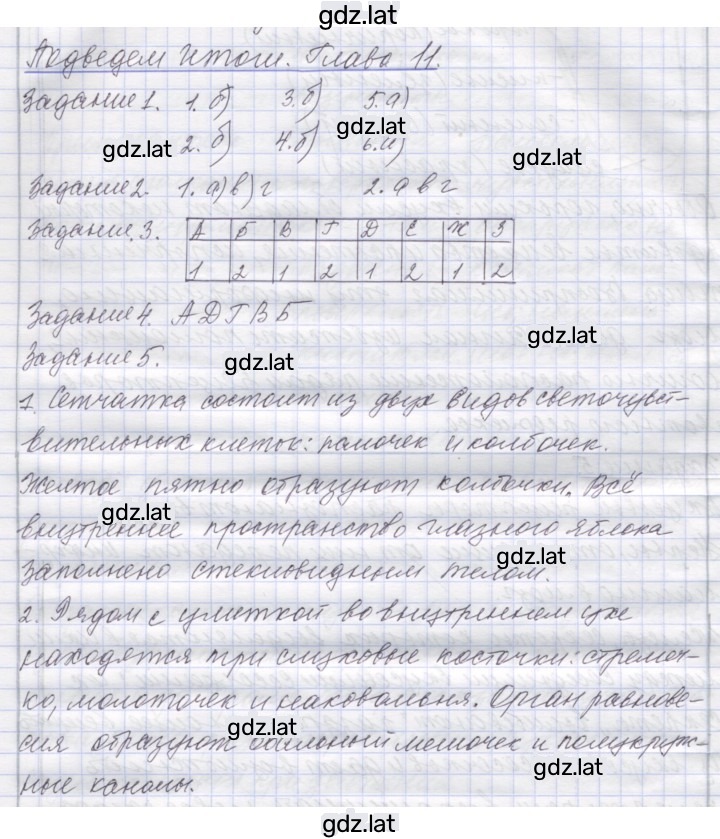 gdz.lat
Подведем итоги. Глава 11.
Задание 1. 1. б) 3. б) 5. а)
gdz.lat
gdz.lat 2. б) 4. б) 6. а) gdz.lat
Задание 2. 1. а) в) г 2. а в г
Задание 3. А Б В Г Д Е Ж З
1 2 1 2 1 2 1 2
Задание 4. А Д Г В Б
gdz.lat
Задание 5. gdz.lat
1. Сетчатка состоит из двух видов светочувст-
вительных клеток: палочек и колбочек.
Желтое пятно образуют колбочки. Всё
gdz.lat
внутреннее пространство глазного яблока
gdz.lat
заполнено стекловидным телом.
2. Рядом с улиткой во внутреннем ухе
находятся три слуховые косточки: стремеч-
ко, молоточек и наковальня. Орган равнове-
gdz.lat
сия образуют овальный мешочек и полукруж-
gdz.lat
ные каналы.
gdz.lat